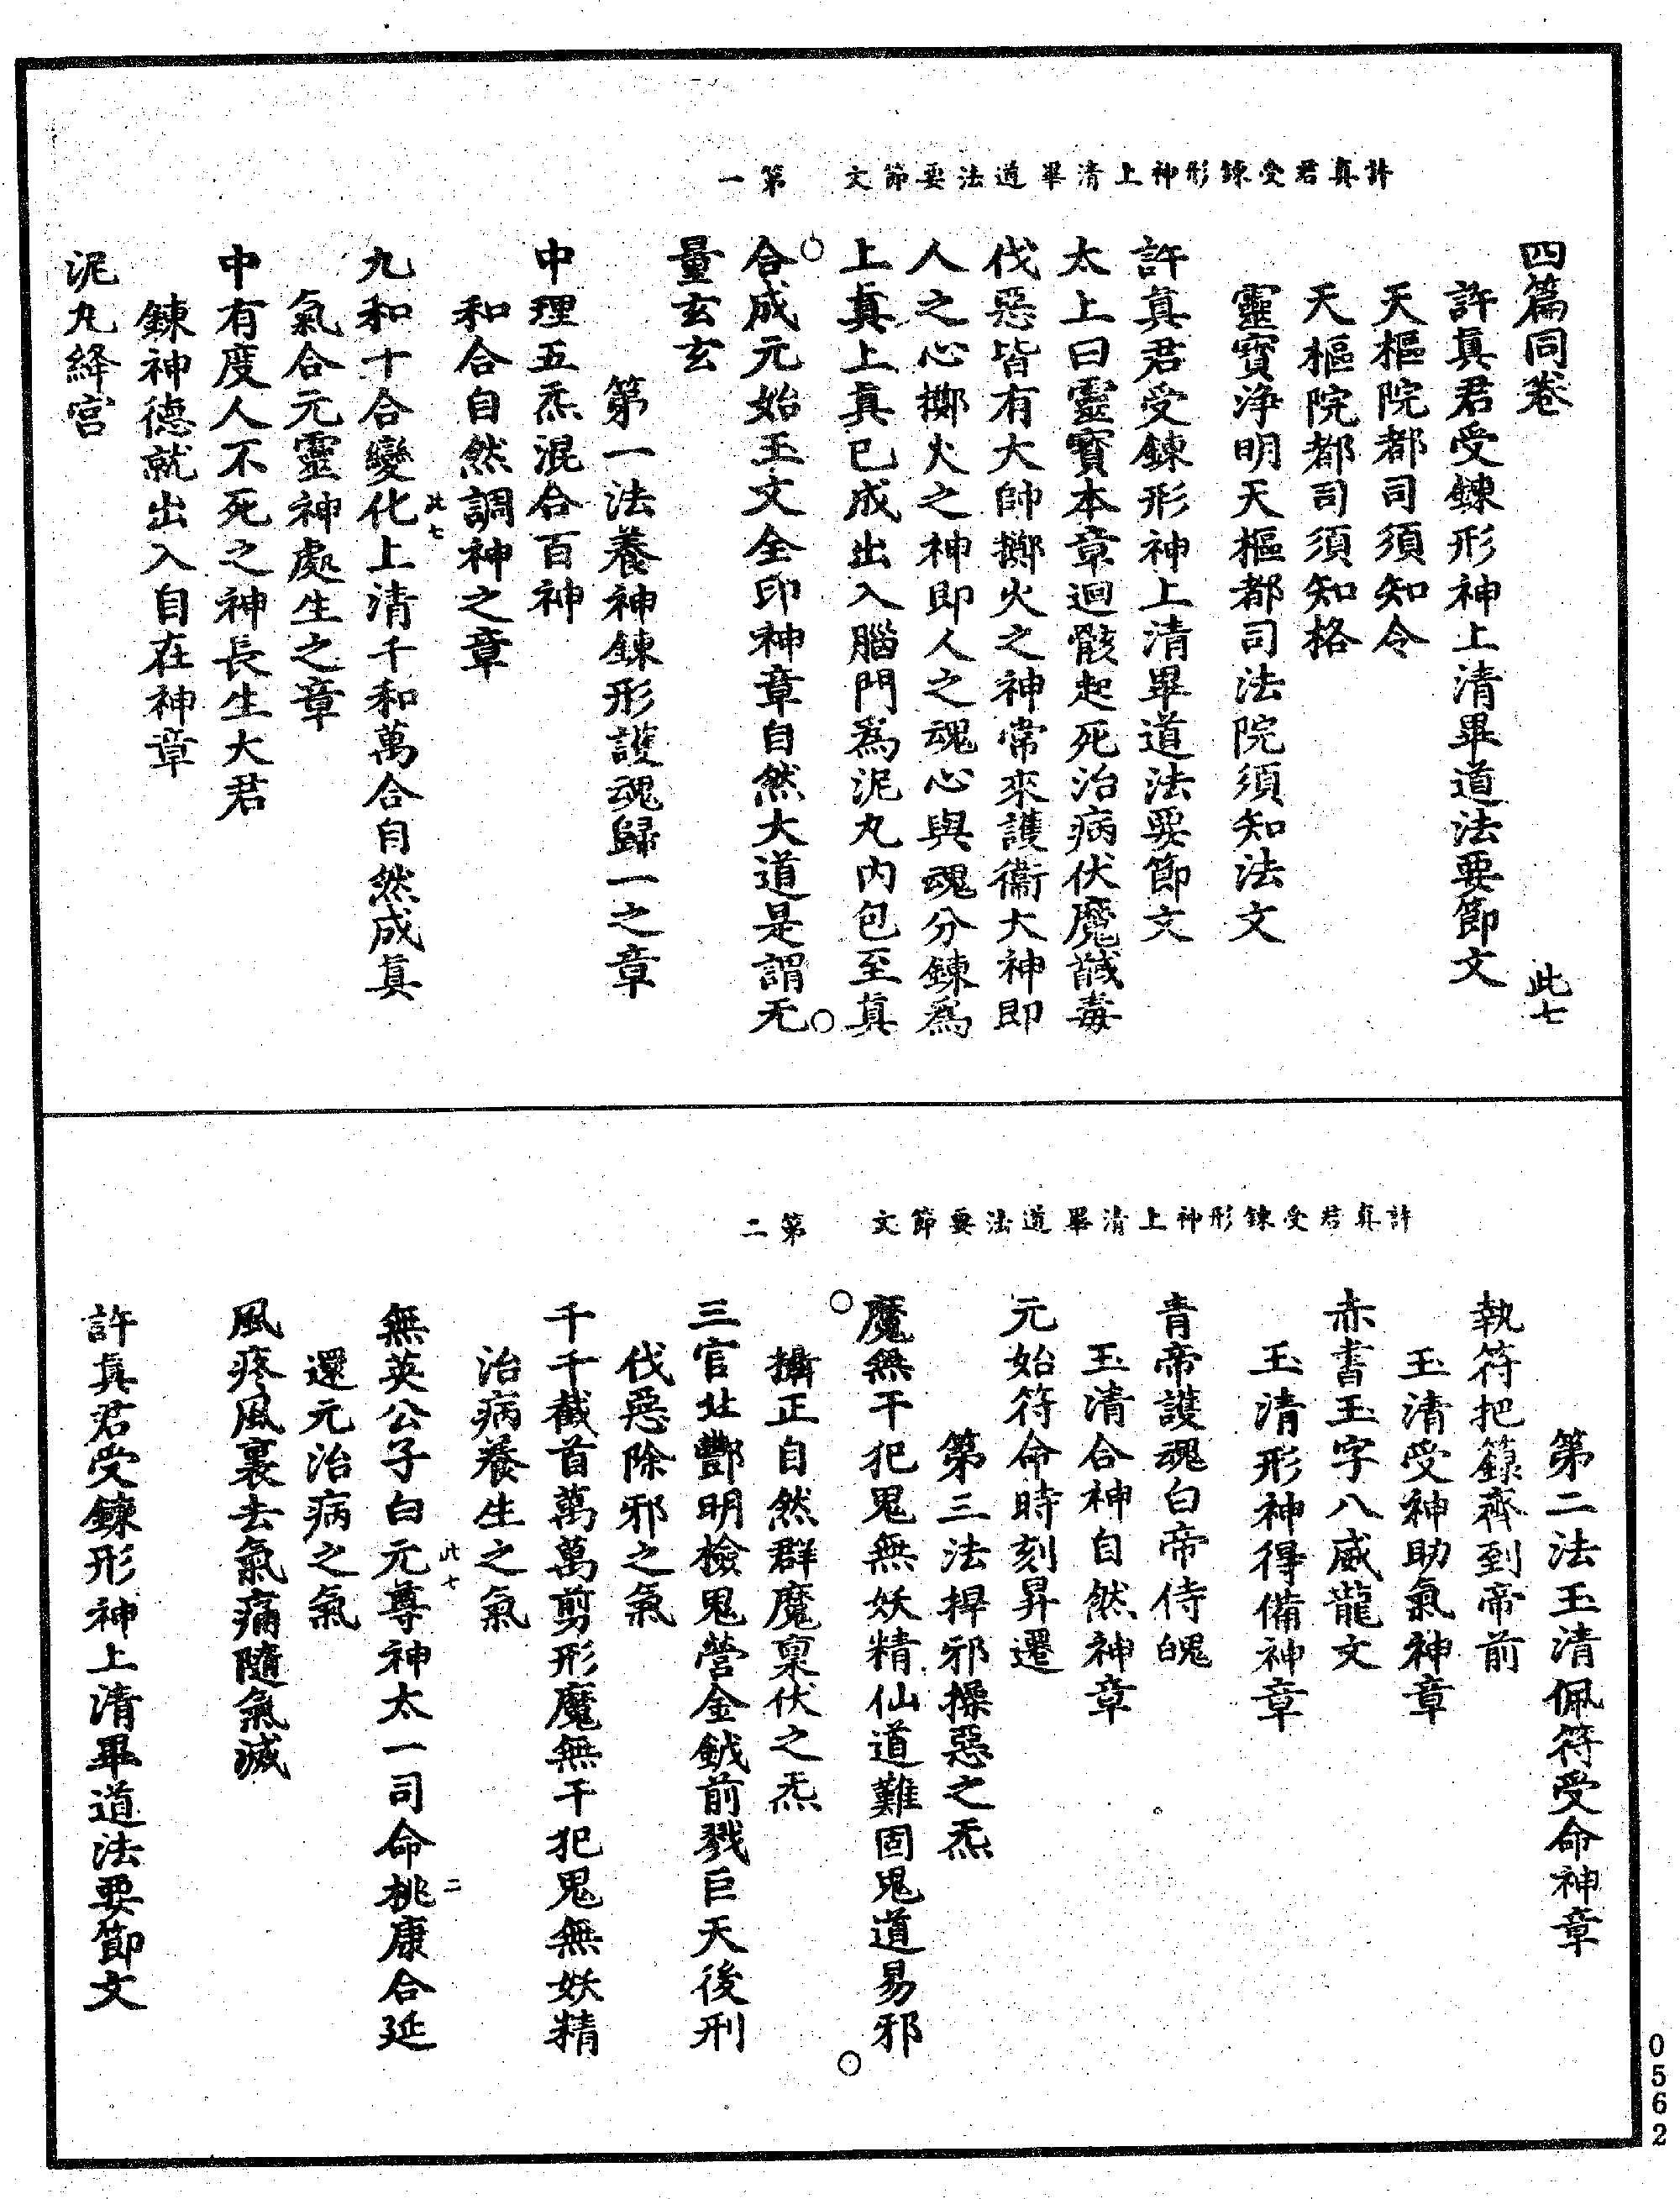 許真君受錬形神上清畢道法要節文　第一
四篇同卷　此七
許真君受錬形神上清畢道法要節文
天樞院都司須知令
天樞院都司須知格
靈寶浄明天樞都司法院須知法文
許真君受錬形神上清畢道法要節文
太上曰靈寶本章迴骸起死治病伏魔馘毒
伐惡皆有大帥擲火之神常來護衞大神即
人之心擲火之神即人之魂心與魂分錬爲
上真上真已成出入腦門爲泥丸内包至真
合成元始玉文全印神章自然大道是謂无
量玄玄
第一法養神錬形護魂歸一之章
中理五炁混合百神
和合自然調神之章
此七
九和十合變化上清千和萬合自然成真
氣合元靈神處生之章
中有度人不死之神長生大君
錬神德就出入自在神章
泥丸絳宫
許真君受錬形神上清畢道法要節文　第二
第二法玉清佩符受命神章
執符把籙齊到帝前
玉清受神助氣神章
赤書玉字八威龍文
玉清形神得備神章
青帝護魂白帝侍魄
玉清合神自然神章
元始符命時刻昇遷
第三法捍邪操惡之炁
魔無干犯鬼無妖精仙道難固鬼道易邪
攝正自然群魔稟伏之炁
三官北酆明檢鬼營金鉞前戮巨天後刑
伐惡除邪之氣
千千截首萬萬剪形魔無干犯鬼無妖精
治病養生之氣
此七　二
無英公子白元尊神太一司命桃康合延
還元治病之氣
風疼風裏去氣痛隨氣滅
許真君受錬形神上清畢道法要節文
0562